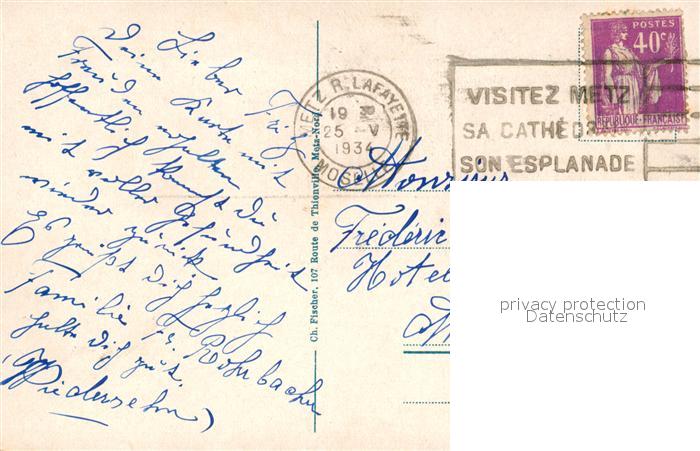 Lieber Fritz
Deine Karte mit
Freuden erhalten
hoffentlich kommst Du
mit voller Gesundheit
wieder zurück.
Es grüßt Dich herzlich
Familie Rohrbacher
halte Dich gut.
(Wiedersehn)
Ch. Fischer, 107 Route de Thionville, Metz-Nord
METZ R. LAFAYETTE
19
25 - V
1934
MOSELLE
VISITEZ METZ
SA CATHÉD
SON ESPLANADE
POSTES
40c
RÉPUBLIQUE FRANÇAISE
Monsieur
Frédéric
Hotel
privacy protection
Datenschutz